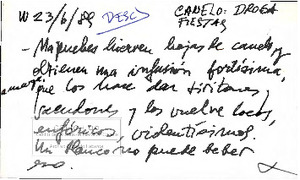 W 23/6/89 DESC CANELO: DROGA
FIESTAS
- Mapuches hierven hojas de canelo y
obtienen una infusión fortísima,
amarga, que los hace dar tiritones,
y los vuelve locos,
eufóricos, violentísimos.
Un blanco no puede beber
eso.